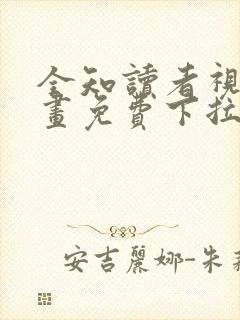 全知讀者視
畫免費下拉
安吉麗娜-朱莉